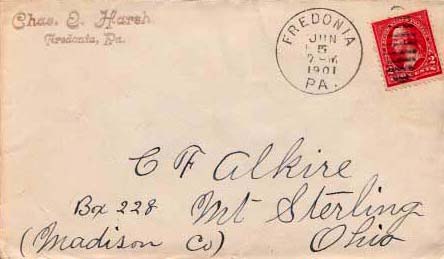 Chas. Q. Harsh
Fredonia, Pa.
FREDONIA
JUN
5
7-M
1901
PA.
2
C F Alkire
Box 228 Mt Sterling
(Madison Co) Ohio